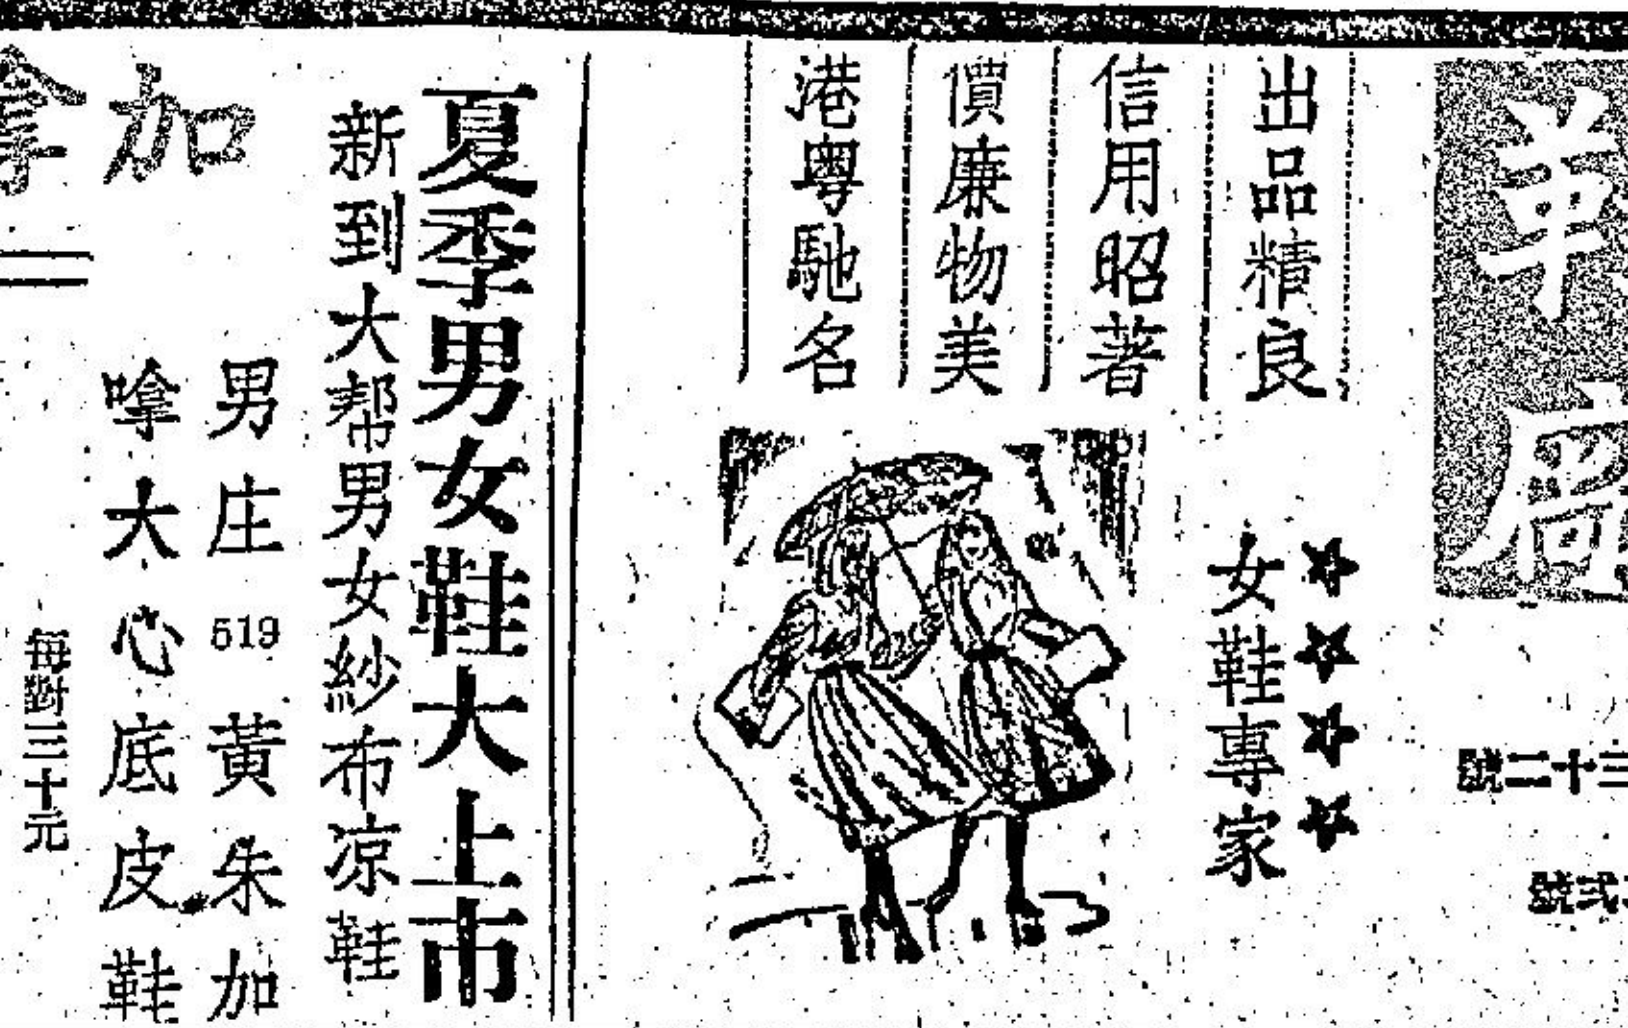 出品精良
信用昭著
價廉物美
港粵馳名
女鞋專家
夏季男女鞋大上市
新到大帮男女紗布凉鞋
加
男庄519黃朱加
嗱大心底皮鞋
每對三十元